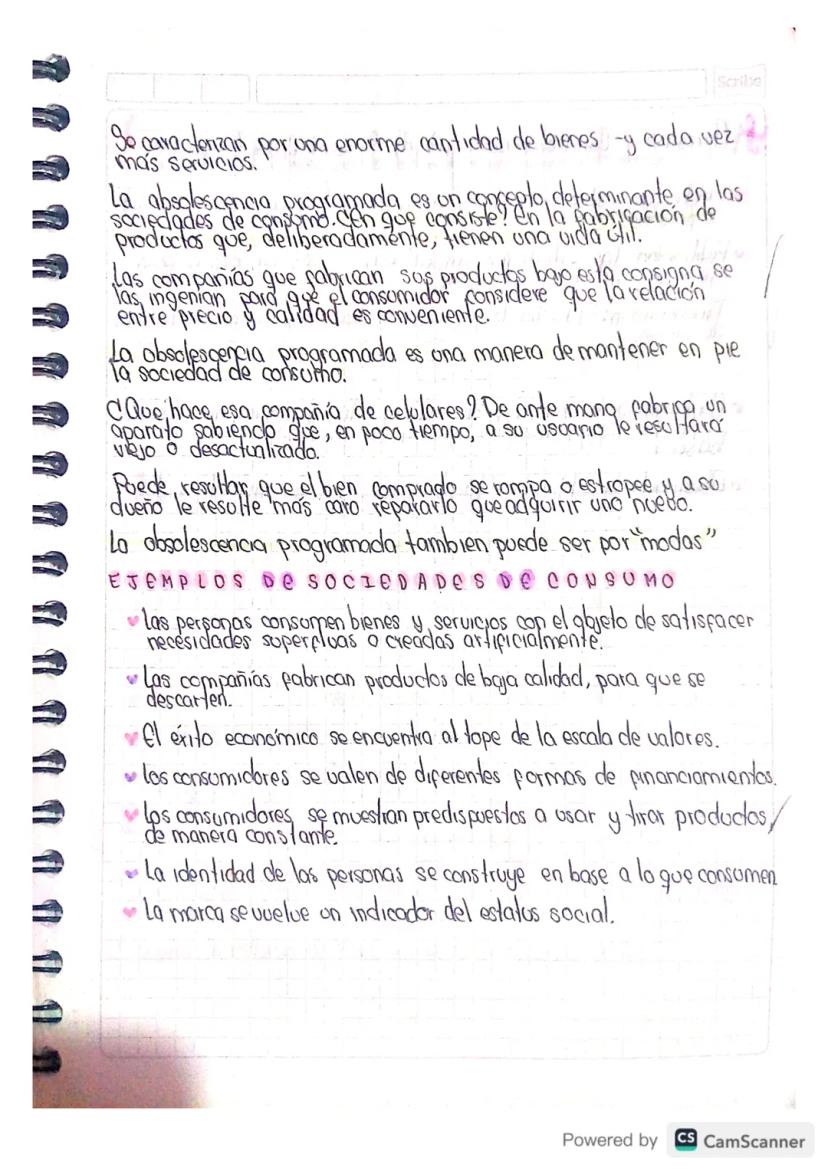 Scribe
Se caracterizan por una enorme cantidad de bienes -y cada vez
más servicios.
La absolescencia programada es un concepto determinante en las
sociedades de consumo. ¿En que consiste? En la fabricación de
productos que, deliberadamente, tienen una vida útil.
Las compañías que fabrican sus productos bajo esta consigna se
las ingenian para que el consumidor considere que la relación
entre precio y calidad es conveniente.
La obsolescencia programada es una manera de mantener en pie
la sociedad de consumo.
¿Que hace esa compañía de celulares? De ante mano fabrica un
aparato sabiendo que, en poco tiempo, a su usuario le resultara
viejo o desactualizado.
Puede resultar que el bien comprado se rompa o estropee y a su
dueño le resulte más caro repararlo que adquirir uno nuevo.
La obsolescencia programada tambien puede ser por "modas"
EJEMPLOS DE SOCIEDADES DE CONSUMO
las personas consumen bienes y servicios con el objeto de satisfacer
necesidades superfluas o creadas artificialmente.
Las compañías fabrican productos de baja calidad, para que se
descarten.
El éxito económico se encuentra al tope de la escala de valores.
los consumidores se valen de diferentes formas de financiamientos.
los consumidores se muestran predispuestos a usar y tirar productos
de manera constante.
La identidad de las personas se construye en base a lo que consumen
La marca se vuelve un indicador del estatus social.
Powered by CS CamScanner